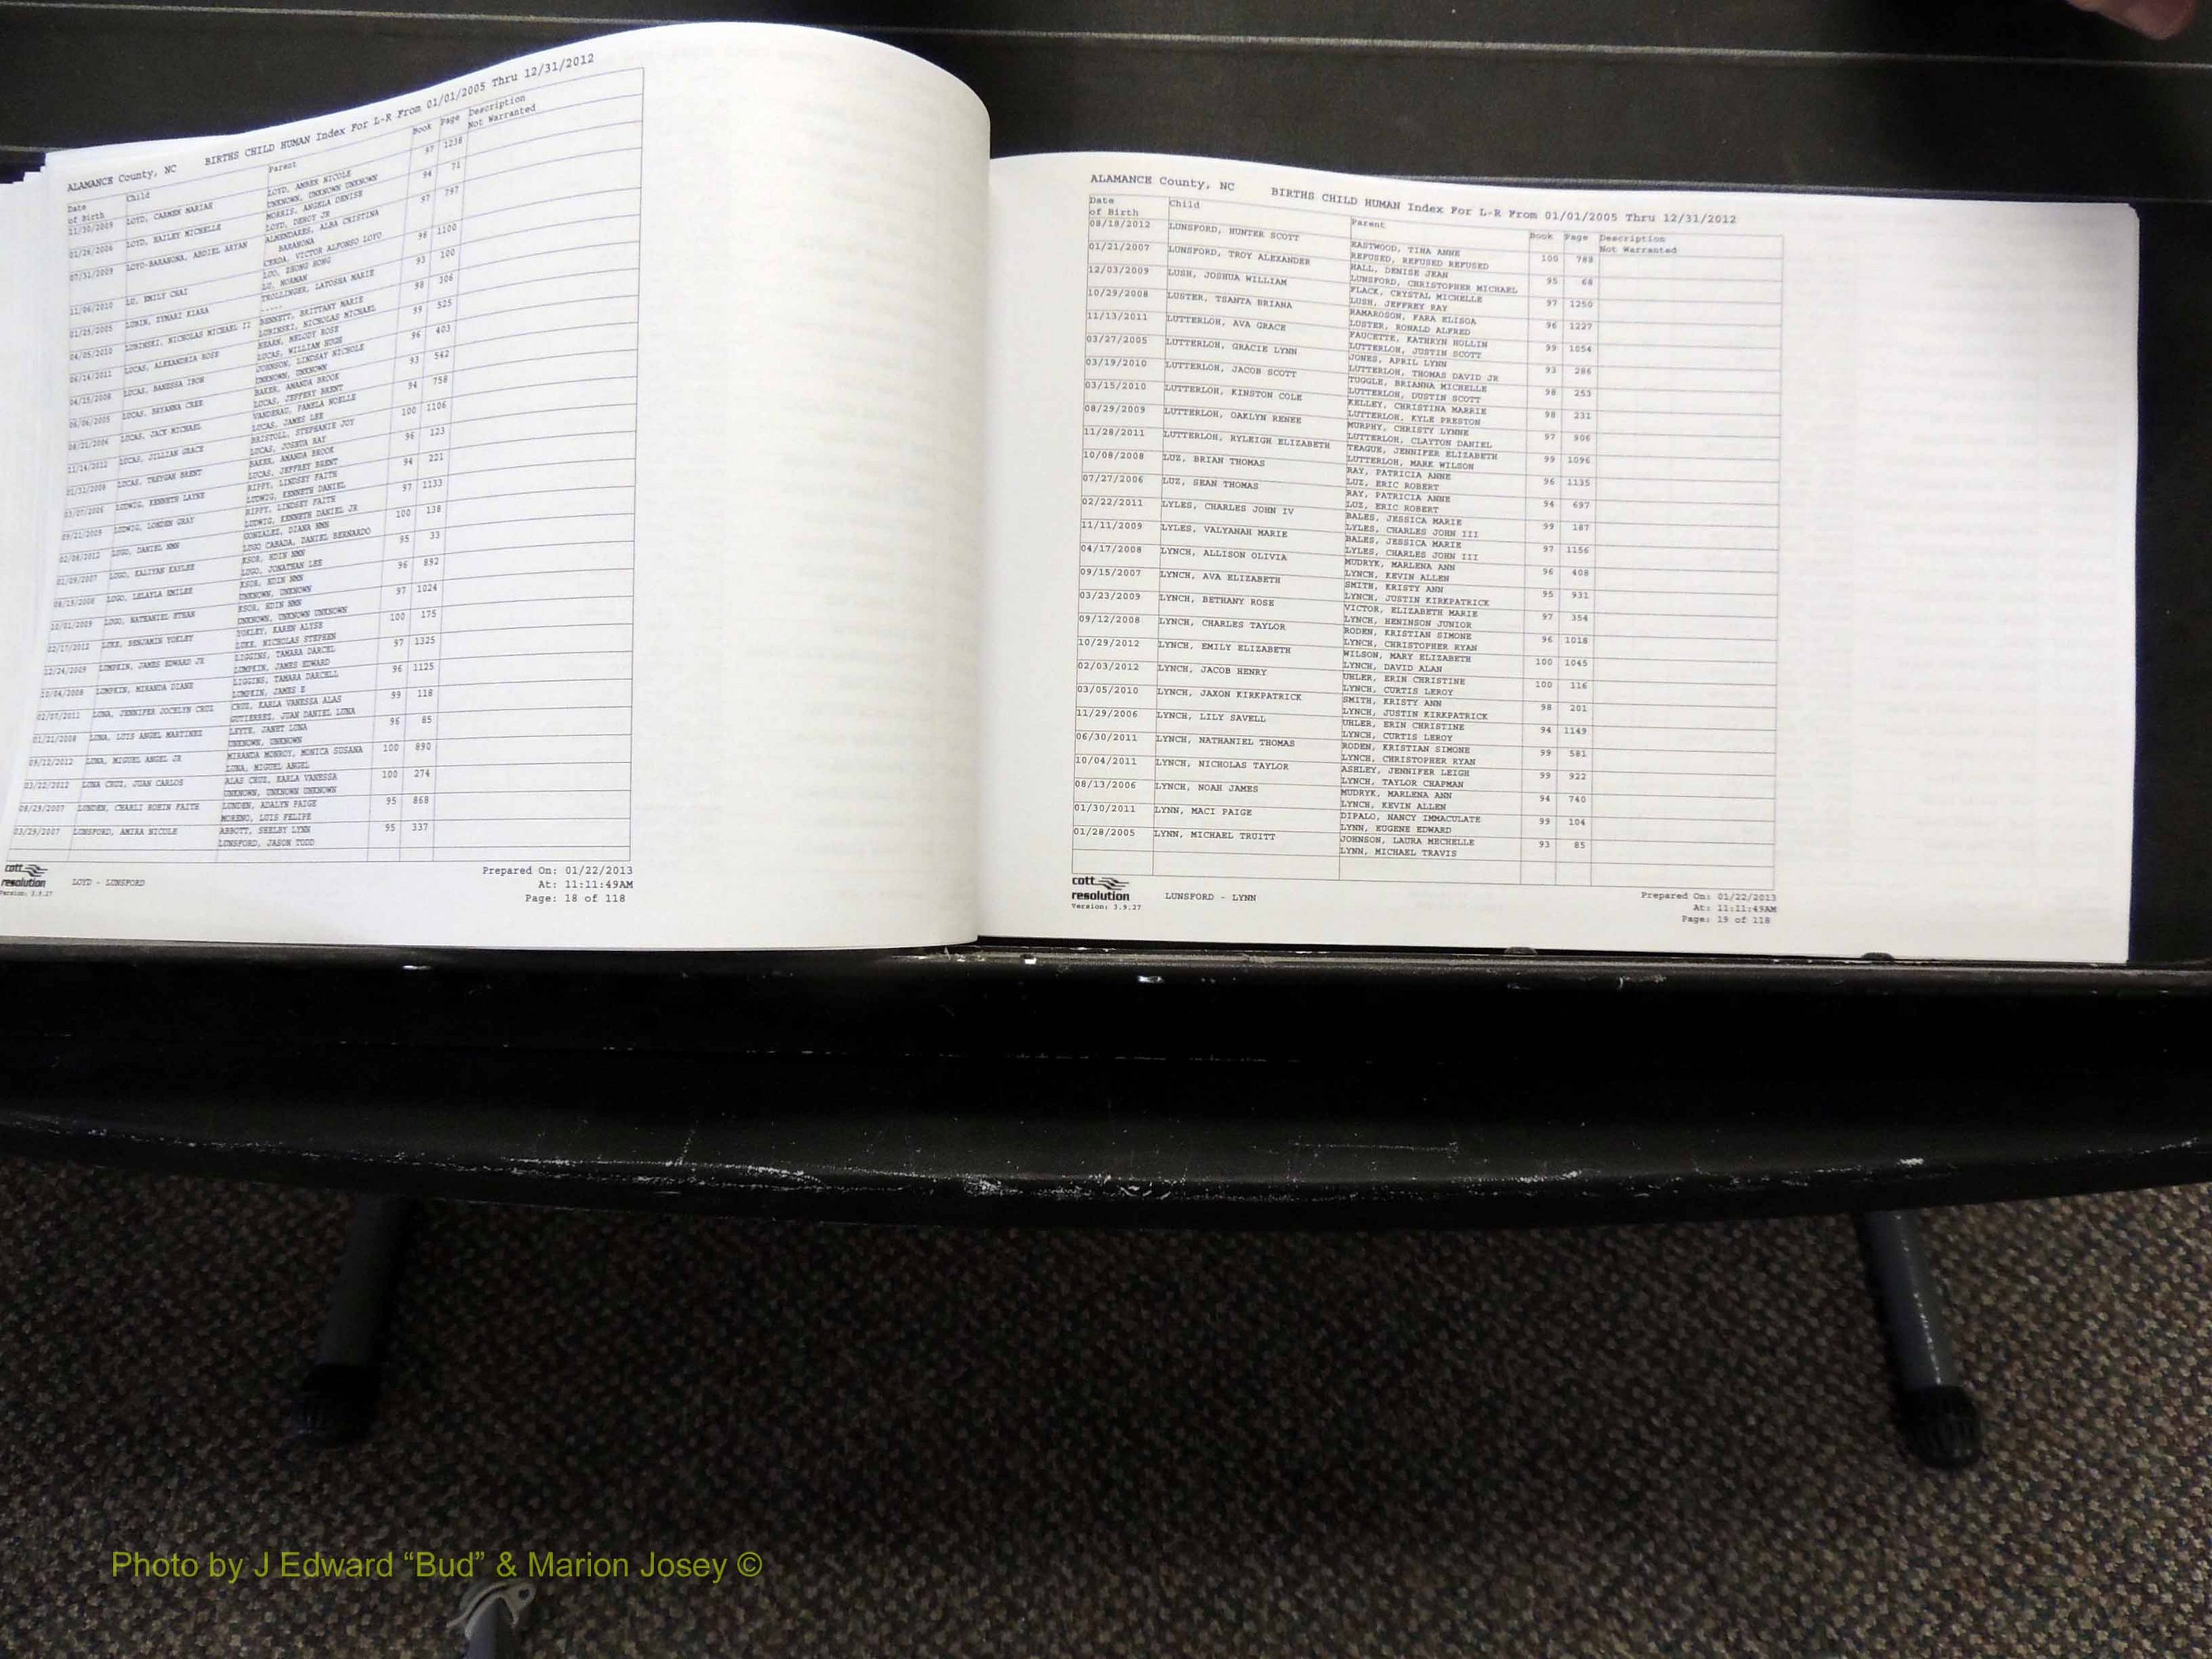 ALAMANCE County, NC BIRTHS CHILD HUMAN Index For L-R From 01/01/2005 Thru 12/31/2012
Date of Birth Child Parent Book Page Description Not Warranted
11/30/2009 LOYD, CARMEN MARIAH LOYD, AMBER NICOLE 97 1238
UNKNOWN, UNKNOWN UNKNOWN
01/26/2006 LOYD, HAILEY MICHELLE MORRIS, ANGELA DENISE 94 71
LOYD, DEROY JR
07/31/2009 LOYD-BARAHONA, ABDIEL ARYAN ALMENDARES, ALBA CRISTINA 97 797
BARAHONA
CERDA, VICTOR ALFONSO LOYO
11/06/2010 LU, EMILY CHAI LUO, ZHONG HONG 98 1100
LU, NORMAN
01/25/2005 LUBIN, ZYMARI KIARA TROLLINGER, LATOSHA MARIE 93 100
04/05/2010 LUBINSKI, NICHOLAS MICHAEL II BENNETT, BRITTANY MARIE 98 306
LUBINSKI, NICHOLAS MICHAEL
06/14/2011 LUCAS, ALEXANDRIA ROSE HEARN, MELODY ROSE 99 525
LUCAS, WILLIAM HUGH
04/15/2008 LUCAS, BANESSA IRON JOHNSON, LINDSAY NICHOLE 96 403
UNKNOWN, UNKNOWN
06/06/2005 LUCAS, BRYANNA CREE BAKER, AMANDA BROOK 93 542
LUCAS, JEFFERY BRENT
08/21/2006 LUCAS, JACK MICHAEL VANDERAU, PAMELA NOELLE 94 758
LUCAS, JAMES LEE
11/14/2012 LUCAS, JILLIAN GRACE BRISTOLL, STEPHANIE JOY 100 1106
LUCAS, JOSHUA RAY
01/31/2008 LUCAS, TREYGAN BRENT BAKER, AMANDA BROOK 96 123
LUCAS, JEFFREY BRENT
03/07/2006 LUDWIG, KENNETH LAYNE RIPPY, LINDSEY FAITH 94 221
LUDWIG, KENNETH DANIEL
09/21/2009 LUDWIG, LONDEN GRAY RIPPY, LINDSEY FAITH 97 1133
LUDWIG, KENNETH DANIEL JR
02/08/2012 LUGO, DANIEL NMN GONZALEZ, DIANA NMN 100 138
LUGO CABADA, DANIEL BERNARDO
01/09/2007 LUGO, KALIYAN KAYLEE KSOR, HDIN NMN 95 33
LUGO, JONATHAN LEE
08/19/2008 LUGO, LELAYLA EMILEE KSOR, HDIN NMN 96 892
UNKNOWN, UNKNOWN
10/01/2009 LUGO, NATHANIEL ETHAN KSOR, HDIN NMN 97 1024
UNKNOWN, UNKNOWN UNKNOWN
02/17/2012 LUKE, BENJAMIN YOKLEY YOKLEY, KAREN ALYSE 100 175
LUKE, NICHOLAS STEPHEN
12/24/2009 LUMPKIN, JAMES EDWARD JR LIGGINS, TAMARA DARCEL 97 1325
LUMPKIN, JAMES EDWARD
10/04/2008 LUMPKIN, MIRANDA DIANE LIGGINS, TAMARA DARCELL 96 1125
LUMPKIN, JAMES E
02/07/2011 LUNA, JENNIFER JOCELYN CRUZ CRUZ, KARLA VANESSA ALAS 99 118
GUTIERREZ, JUAN DANIEL LUNA
01/21/2008 LUNA, LUIS ANGEL MARTINEZ LEYTE, JANET LUNA 96 85
UNKNOWN, UNKNOWN
09/12/2012 LUNA, MIGUEL ANGEL JR MIRANDA MONROY, MONICA SUSANA 100 890
LUNA, MIGUEL ANGEL
03/22/2012 LUNA CRUZ, JUAN CARLOS ALAS CRUZ, KARLA VANESSA 100 274
UNKNOWN, UNKNOWN UNKNOWN
08/29/2007 LUNDEN, CHARLI ROHIN FAITH LUNDEN, ADALYN PAIGE 95 868
MORENO, LUIS FELIPE
03/29/2007 LUNSFORD, AMIRA NICOLE ABBOTT, SHELBY LYNN 95 337
LUNSFORD, JASON TODD
cott resolution
Version: 3.9.27
LOYD - LUNSFORD
Prepared On: 01/22/2013
At: 11:11:49AM
Page: 18 of 118
ALAMANCE County, NC BIRTHS CHILD HUMAN Index For L-R From 01/01/2005 Thru 12/31/2012
Date of Birth Child Parent Book Page Description Not Warranted
08/18/2012 LUNSFORD, HUNTER SCOTT EASTWOOD, TINA ANNE 100 788
REFUSED, REFUSED REFUSED
01/21/2007 LUNSFORD, TROY ALEXANDER HALL, DENISE JEAN 95 68
LUNSFORD, CHRISTOPHER MICHAEL
12/03/2009 LUSH, JOSHUA WILLIAM FLACK, CRYSTAL MICHELLE 97 1250
LUSH, JEFFREY RAY
10/29/2008 LUSTER, TSANTA BRIANA RAMAROSON, FARA ELISOA 96 1227
LUSTER, RONALD ALFRED
11/13/2011 LUTTERLOH, AVA GRACE FAUCETTE, KATHRYN HOLLIN 99 1054
LUTTERLOH, JUSTIN SCOTT
03/27/2005 LUTTERLOH, GRACIE LYNN JONES, APRIL LYNN 93 286
LUTTERLOH, THOMAS DAVID JR
03/19/2010 LUTTERLOH, JACOB SCOTT TUGGLE, BRIANNA MICHELLE 98 253
LUTTERLOH, DUSTIN SCOTT
03/15/2010 LUTTERLOH, KINSTON COLE KELLEY, CHRISTINA MARRIE 98 231
LUTTERLOH, KYLE PRESTON
08/29/2009 LUTTERLOH, OAKLYN RENEE MURPHY, CHRISTY LYNNE 97 906
LUTTERLOH, CLAYTON DANIEL
11/28/2011 LUTTERLOH, RYLEIGH ELIZABETH TEAGUE, JENNIFER ELIZABETH 99 1096
LUTTERLOH, MARK WILSON
10/08/2008 LUZ, BRIAN THOMAS RAY, PATRICIA ANNE 96 1135
LUZ, ERIC ROBERT
07/27/2006 LUZ, SEAN THOMAS RAY, PATRICIA ANNE 94 697
LUZ, ERIC ROBERT
02/22/2011 LYLES, CHARLES JOHN IV BALES, JESSICA MARIE 99 187
LYLES, CHARLES JOHN III
11/11/2009 LYLES, VALYANAH MARIE BALES, JESSICA MARIE 97 1156
LYLES, CHARLES JOHN III
04/17/2008 LYNCH, ALLISON OLIVIA MUDRYK, MARLENA ANN 96 408
LYNCH, KEVIN ALLEN
09/15/2007 LYNCH, AVA ELIZABETH SMITH, KRISTY ANN 95 931
LYNCH, JUSTIN KIRKPATRICK
03/23/2009 LYNCH, BETHANY ROSE VICTOR, ELIZABETH MARIE 97 354
LYNCH, HENINSON JUNIOR
09/12/2008 LYNCH, CHARLES TAYLOR RODEN, KRISTIAN SIMONE 96 1018
LYNCH, CHRISTOPHER RYAN
10/29/2012 LYNCH, EMILY ELIZABETH WILSON, MARY ELIZABETH 100 1045
LYNCH, DAVID ALAN
02/03/2012 LYNCH, JACOB HENRY UHLER, ERIN CHRISTINE 100 116
LYNCH, CURTIS LEROY
03/05/2010 LYNCH, JAXON KIRKPATRICK SMITH, KRISTY ANN 98 201
LYNCH, JUSTIN KIRKPATRICK
11/29/2006 LYNCH, LILY SAVELL UHLER, ERIN CHRISTINE 94 1149
LYNCH, CURTIS LEROY
06/30/2011 LYNCH, NATHANIEL THOMAS RODEN, KRISTIAN SIMONE 99 581
LYNCH, CHRISTOPHER RYAN
10/04/2011 LYNCH, NICHOLAS TAYLOR ASHLEY, JENNIFER LEIGH 99 922
LYNCH, TAYLOR CHAPMAN
08/13/2006 LYNCH, NOAH JAMES MUDRYK, MARLENA ANN 94 740
LYNCH, KEVIN ALLEN
01/30/2011 LYNN, MACI PAIGE DIPALO, NANCY IMMACULATE 99 104
LYNN, EUGENE EDWARD
01/28/2005 LYNN, MICHAEL TRUITT JOHNSON, LAURA MECHELLE 93 85
LYNN, MICHAEL TRAVIS
cott resolution
Version: 3.9.27
LUNSFORD - LYNN
Prepared On: 01/22/2013
At: 11:11:49AM
Page: 19 of 118
Photo by J Edward “Bud” & Marion Josey ©